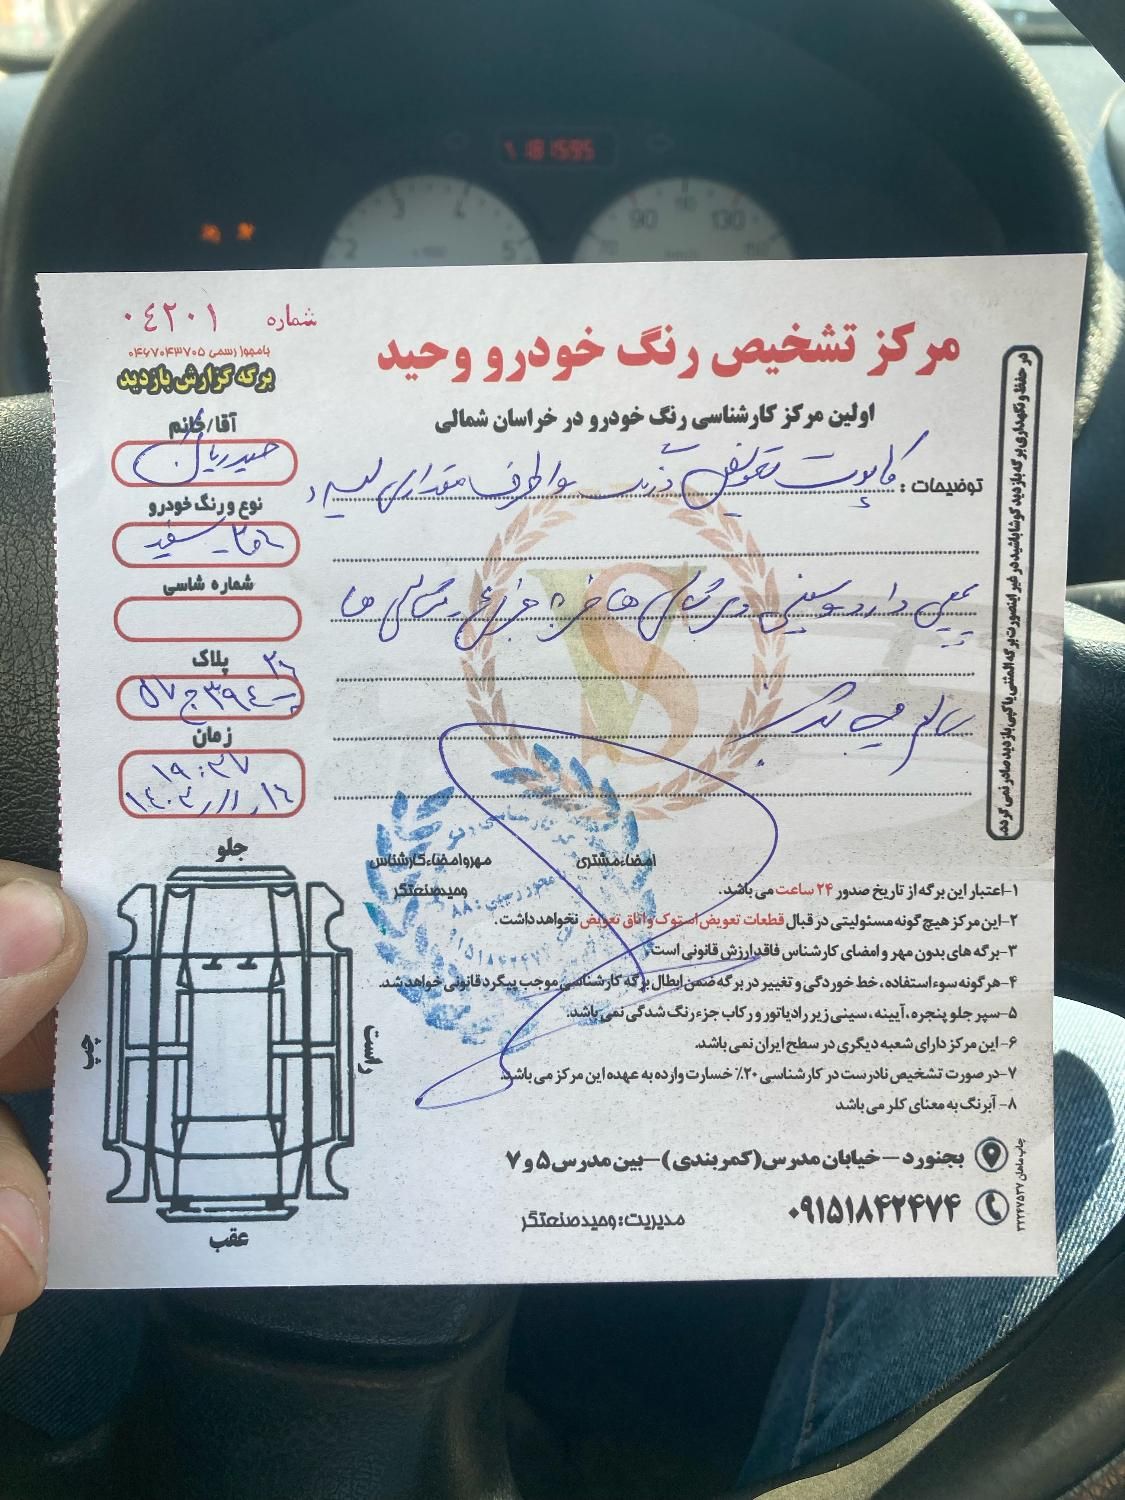 181595
شماره ۰۴۲۰۱
بامجوز رسمی ۰۴۶۷۰۴۳۷۰۵
برگه گزارش بازدید
مرکز تشخیص رنگ خودرو وحید
اولین مرکز کارشناسی رنگ خودرو در خراسان شمالی
آقا/خانم
نوع و رنگ خودرو
سفید
شماره شاسی
پلاک
۳۹۴ ج ۵۷
زمان
۱۹:۳۷
توضیحات: کاپوت تعویض اطراف مقداری لیسه و
دارد سینی
سالم می باشد
در حفظ و نگهداری برگه بازدید کوشا باشید در غیر اینصورت برگه المثنی یا کپی بازدید صادر نمی گردد
امضاء مشتری
مهر و امضاء کارشناس
وحید صنعتگر
۱-اعتبار این برگه از تاریخ صدور ۲۴ ساعت می باشد.
۲-این مرکز هیچ گونه مسئولیتی در قبال قطعات تعویض استوک و اتاق تعویض نخواهد داشت.
۳-برگه های بدون مهر و امضای کارشناس فاقد ارزش قانونی است.
۴-هرگونه سوء استفاده، خط خوردگی و تغییر در برگه ضمن ابطال برگه کارشناسی موجب پیگرد قانونی خواهد شد.
۵-سپر جلو پنجره، آیینه، سینی زیر رادیاتور و رکاب جزء رنگ شدگی نمی باشد.
۶-این مرکز دارای شعبه دیگری در سطح ایران نمی باشد.
۷-در صورت تشخیص نادرست در کارشناسی ۲۰٪ خسارت وارده به عهده این مرکز می باشد.
۸-آبرنگ به معنای کلر می باشد
جلو
چپ
راست
عقب
بجنورد – خیابان مدرس (کمربندی) – بین مدرس ۵ و ۷
۰۹۱۵۱۸۴۲۴۷۴
مدیریت: وحید صنعتگر